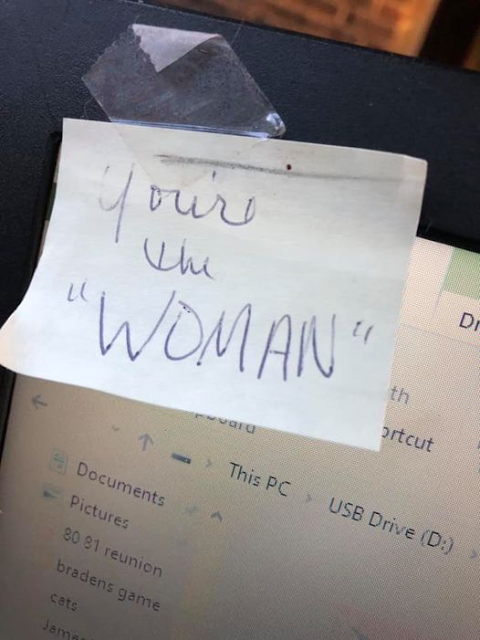 you're
the
"WOMAN"
Dr
th
pboard
ortcut
This PC
USB Drive (D:)
Documents
Pictures
80 81 reunion
bradens game
cats
James